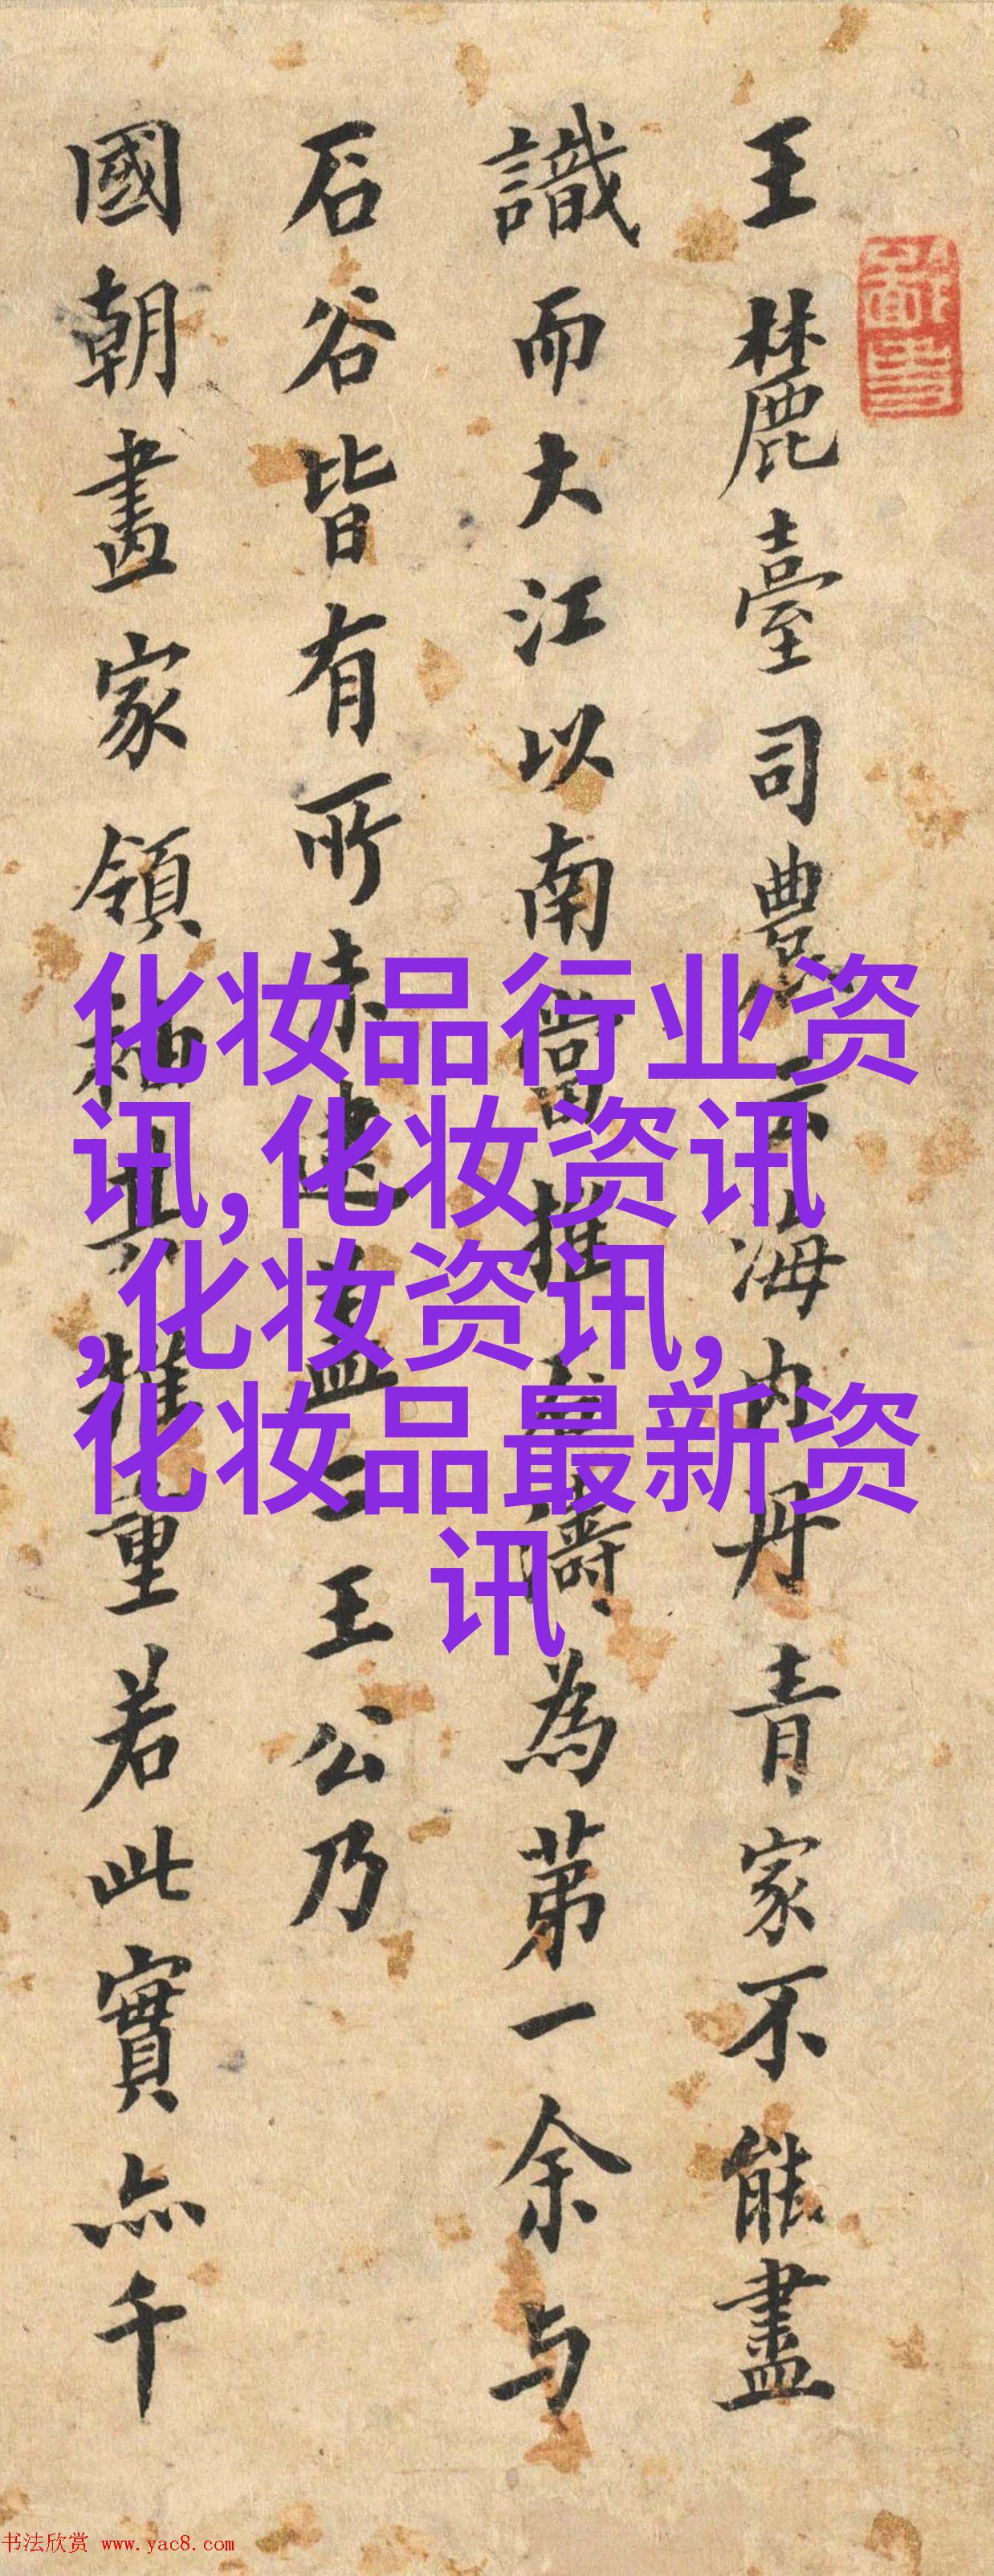 王麓臺司農云海内丹青家不能盡
識而大江以南當推石濤為第一余与
石谷皆有所未逮盖二王公乃
國朝畫家領袖其推重若此實亦千
化妆品行业资
讯,化妆资讯
,化妆资讯,
化妆品最新资
讯
书法欣赏 www.yac8.com